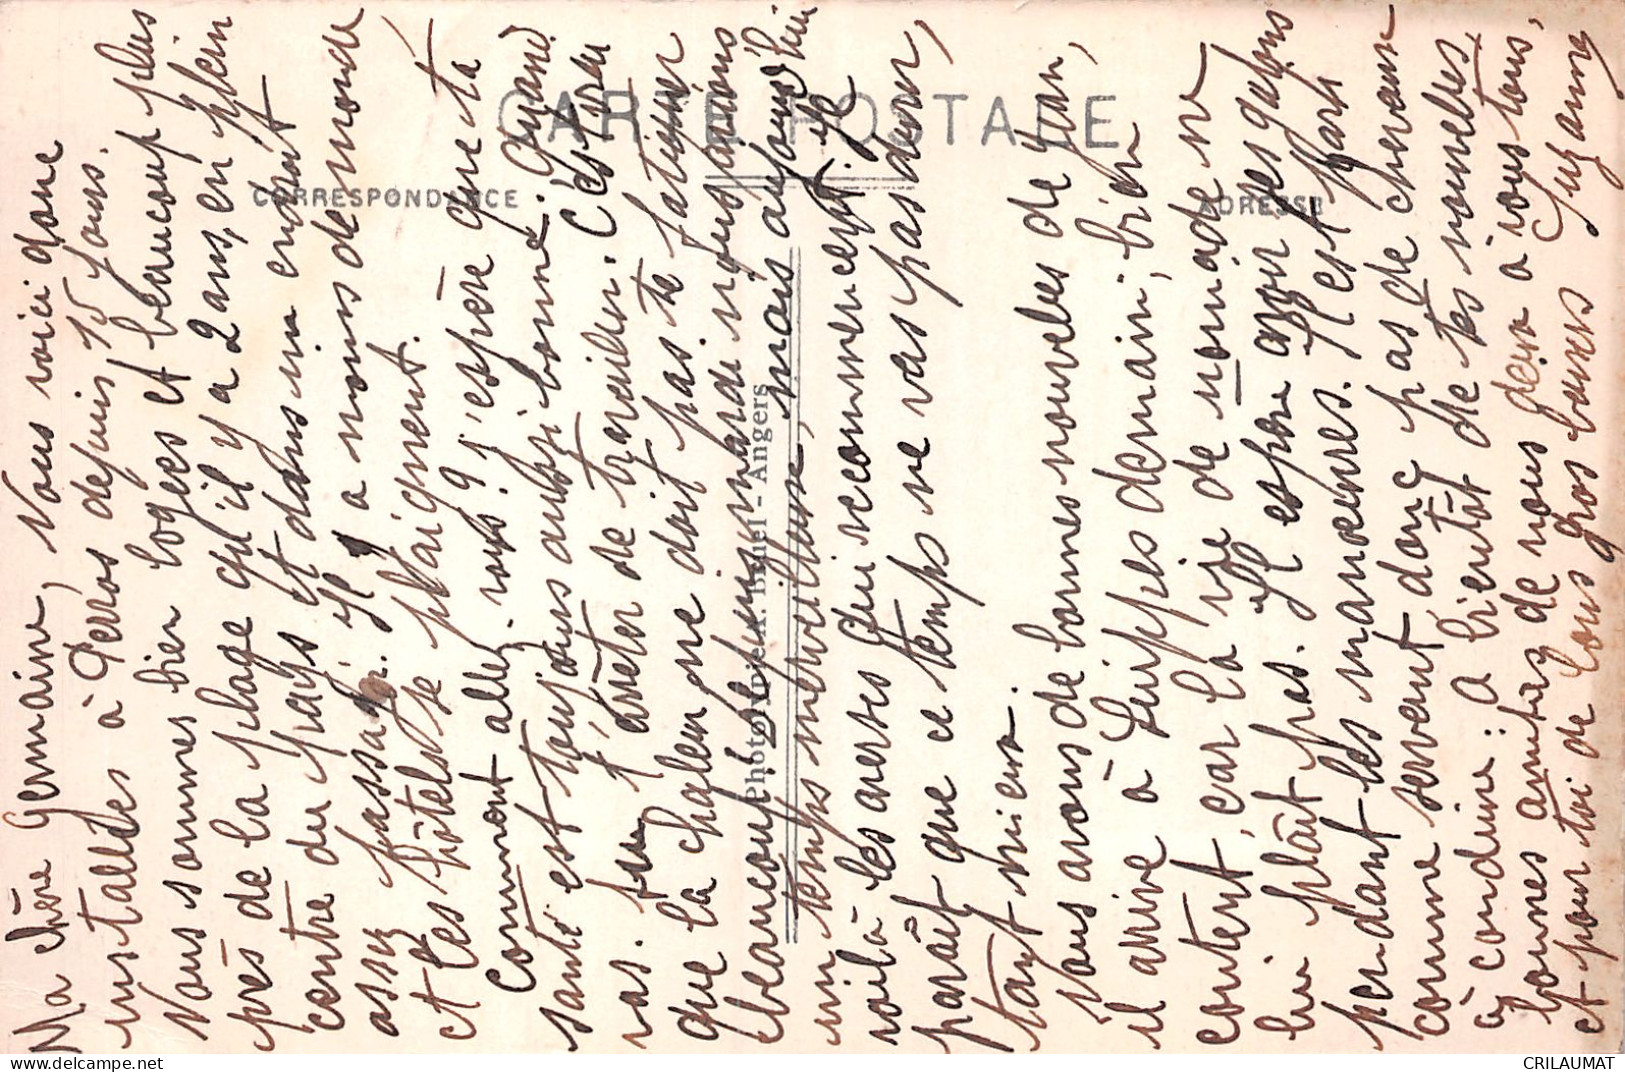 Ma chère Germaine, Nous voici donc
installées à Perros depuis 15 jours.
Nous sommes bien logées et beaucoup plus
près de la plage qu'il y a 2 ans, en plein
centre du pays et dans un endroit
assez passager. Il y a moins de monde
et les hôtels se plaignent.
Comment allez vous? J'espère que ta
santé est toujours aussi bonne. Quand
t'arrêter de travailler. C'est
vas. tu
que la chaleur ne doit pas te fatiguer
beaucoup puisque nous avons
un temps merveilleux, mais aujourd'hui
voilà les averses qui recommencent. Il
paraît que ce temps ne va pas durer,
tant mieux.
Nous avons de bonnes nouvelles de Jean,
il arrive à Suippes demain, bien
content, car la vie de nomade ne
lui plaît pas. Il espère avoir ses galons
pendant les manoeuvres. Il est parti
comme servent donc pas de chevaux
à conduire. A bientôt de tes nouvelles,
bonnes amitiés de nous deux à vous tous,
et pour toi de tous gros baisers Suzanne
CARTE POSTALE
CORRESPONDANCE
ADRESSE
Photo-Typie A. Bruel - Angers
CRILAUMAT